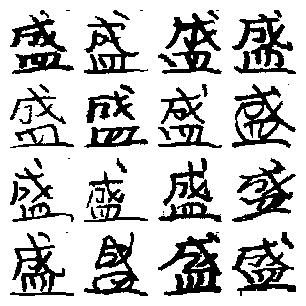 盛盛盛盛
盛盛盛盛
盛盛盛盛
盛盛盛盛